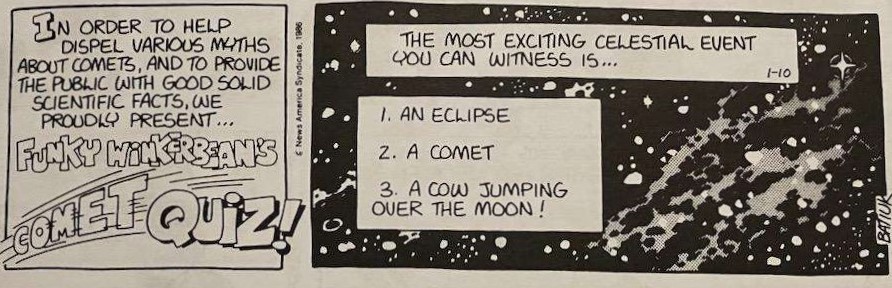 IN ORDER TO HELP
DISPEL VARIOUS MYTHS
ABOUT COMETS, AND TO PROVIDE
THE PUBLIC WITH GOOD SOLID
SCIENTIFIC FACTS, WE
PROUDLY PRESENT...
FUNKY WINKERBEAN'S
COMET QUIZ!
© News America Syndicate, 1986
THE MOST EXCITING CELESTIAL EVENT
YOU CAN WITNESS IS...
1-10
1. AN ECLIPSE
2. A COMET
3. A COW JUMPING
OVER THE MOON!
BATIUK